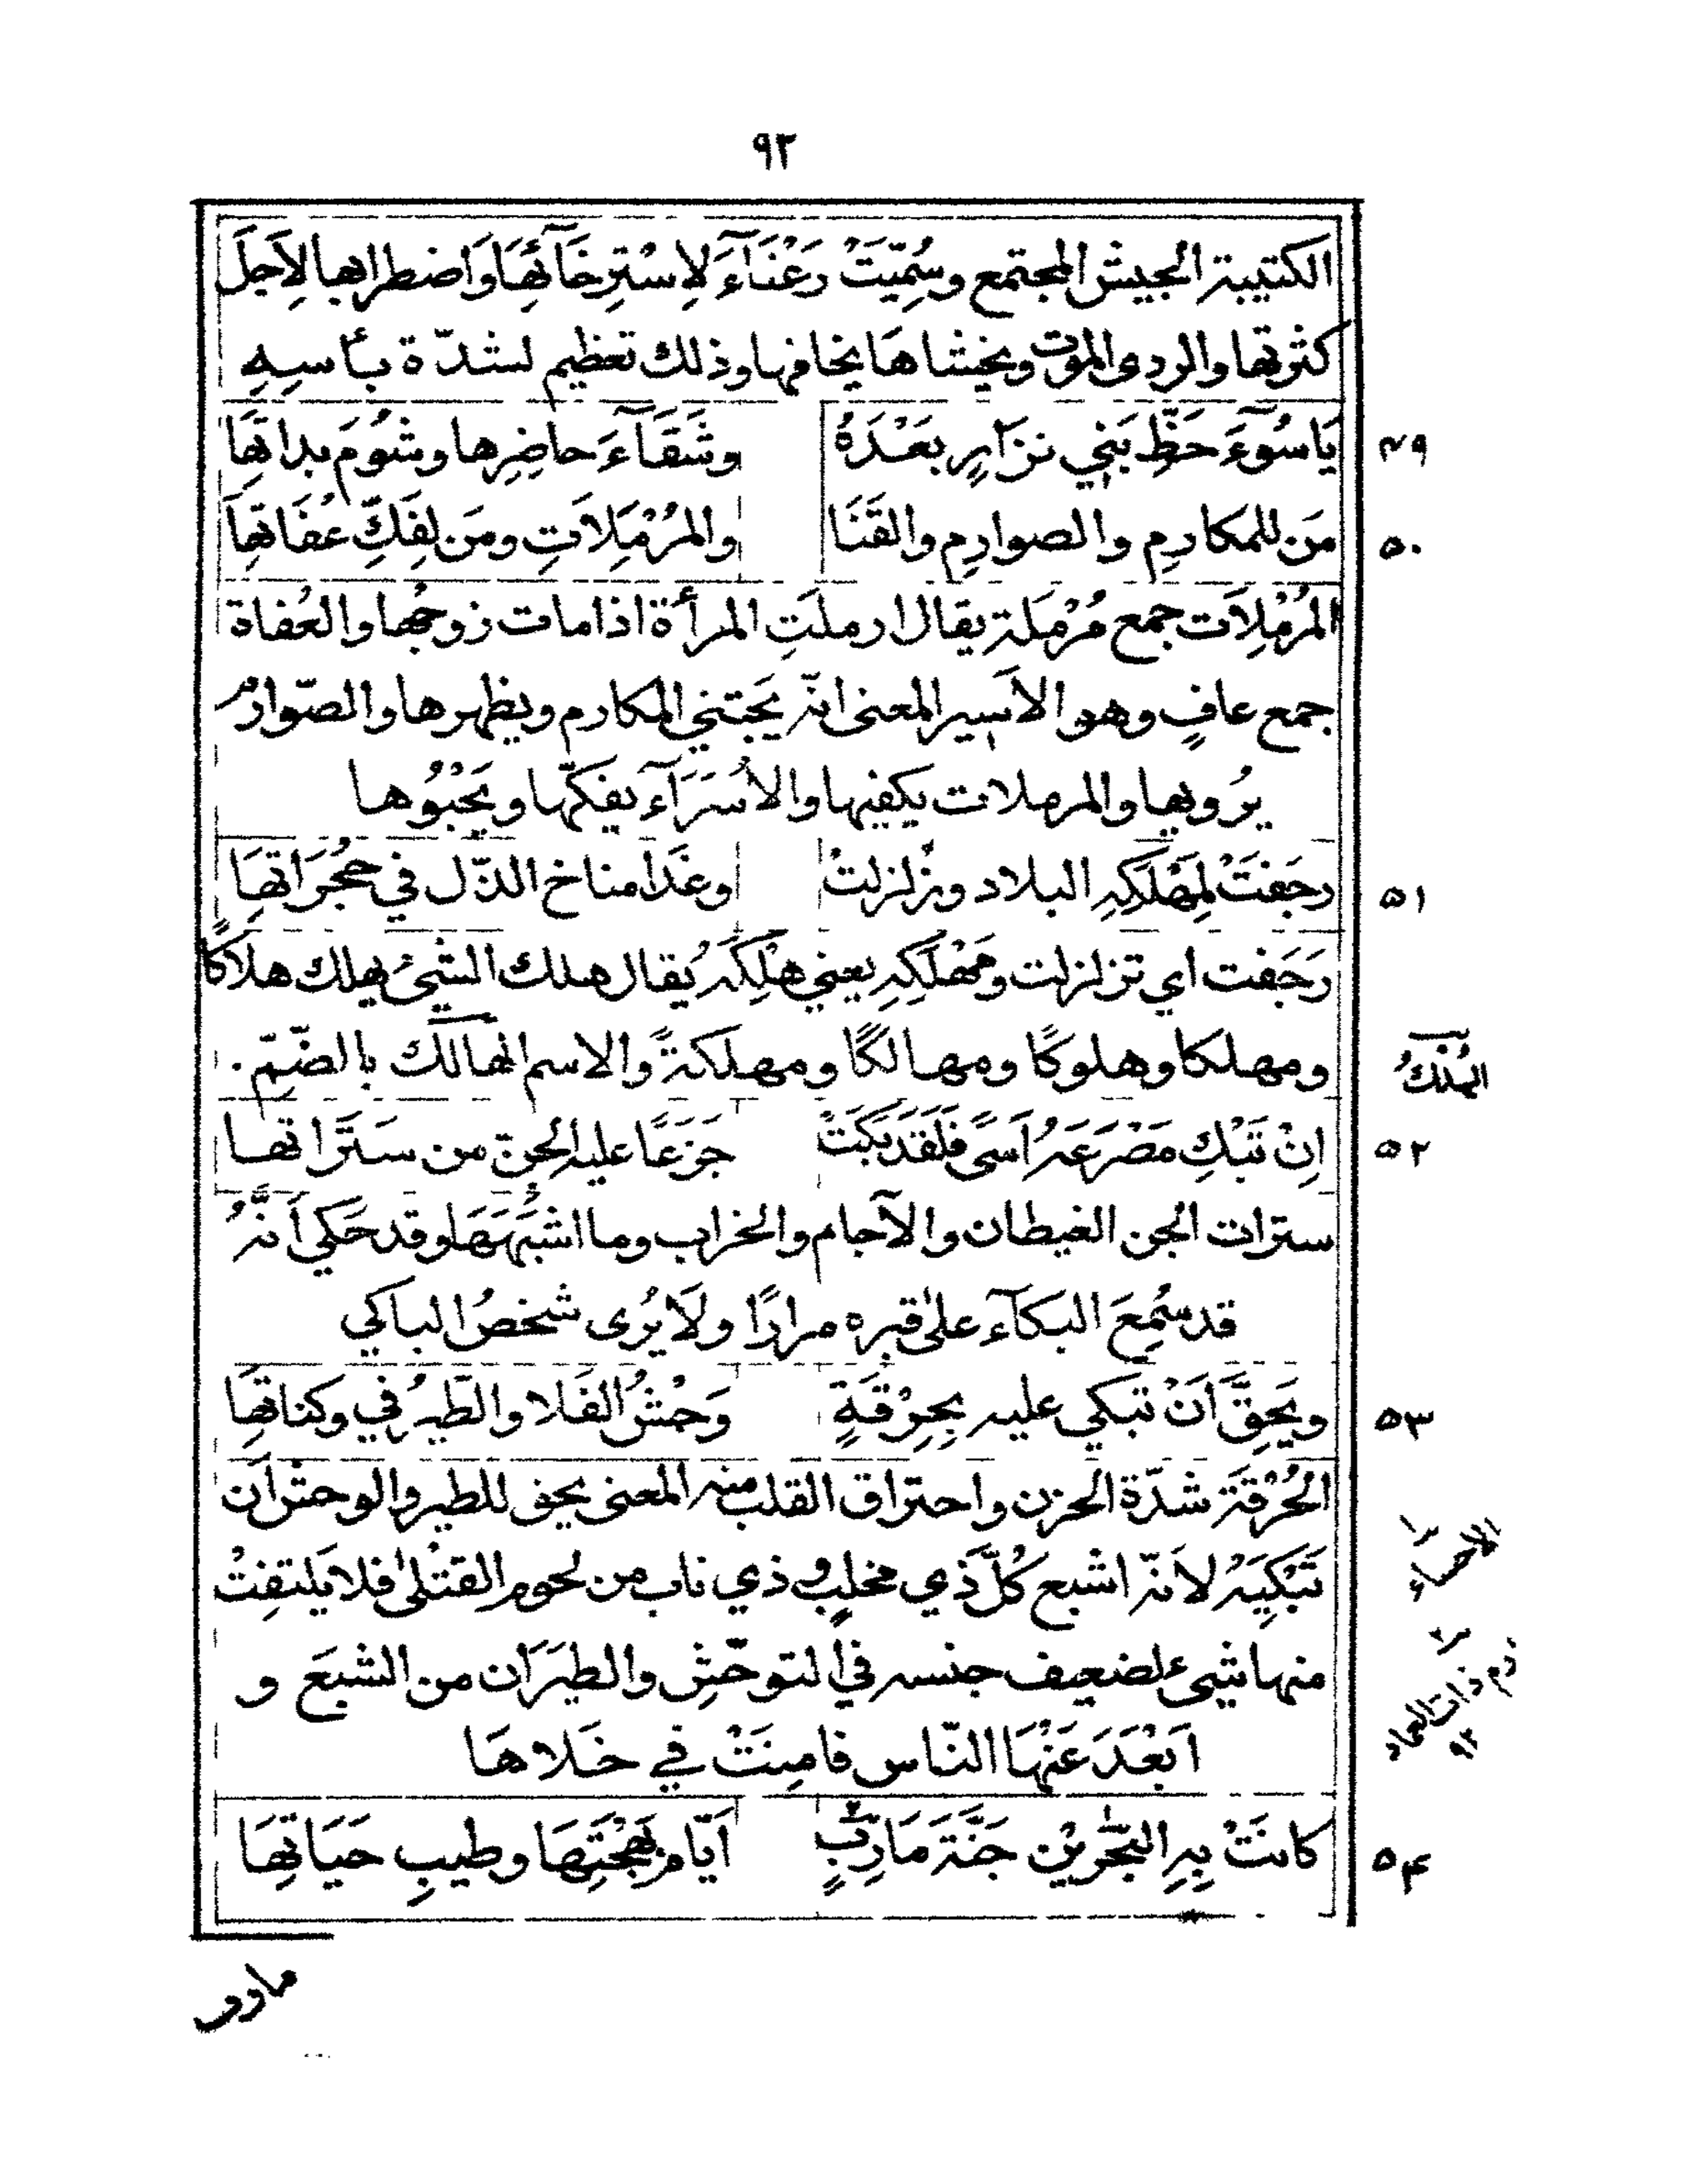 ٩٢
الكتيبة الجيش المجتمع وسُمِّيَتْ رَعْنَآءَ لِاِسْتِرخَآئِهَا وَاضطرابها لِاَجلَ
كثرتها والردى الموت ويخشاهَا يخافها وذلك تعظيم لشدّة بأسِهِ
٤٩ يَاسُوٓءَ حَظِّ بَنِي نزَارٍ بعَْدَهُ وشَقَآءَ حاضِرِها وشُومَ بداتِهَا
٥٠ مَن للمكارِم والصوارِم والقَنَا والمُرْمِلاَتِ ومَن لِفَكِّ عُفَاتِهاَ
المُرْمِلاَت جمع مُرْمَلة يقال ارملَتِ المرأة اذا مات زوجُها والعُفاة
جمع عافٍ وهو الاَسير المعنى انّه يَجتني المكارم ويظهرها والصّوارم
يُرويها والمرملات يكفيها والاُسَرَآء يفكّها ويَحْبُوها
٥١ رجَفتَْ لِمَهْلَكِهِ البلاد وزُلزلتْ وغَدَا مناخ الذّل في حُجُرَاتِهَا
رَجَفت اي تزلزلت ومَهْلَكِهِ يعني هِلْكَه يُقال هلك الشيئ يهلك هلاَكًا
ومهلكا وهلوكًا ومهالكًا ومهلكةً والاسم الهالك بالضّمّ.
الهُلْكُ
٥٢ اِنْ تَبْكِ مَصْرَعَهُ اَسًى فلَقَد بَكَتْ جَزَعًا عليه الجنّ من سَتَرَاتها
سترات الجن الغيطان والآجام والخراب وما اشبَهَهَا وقد حَكي اَنَّهُ
قد سُمِعَ البكآء على قبره مرارًا ولَا يُرى شخصُ الباكي
٥٣ ويَحِقَّ اَنْ تبكي عليه بِحِرْقَةٍ وَحْشُ الفَلا والطّيرُ في وكناتِهَا
الحُرْقَة شدّة الحزن واحتراق القلب منه المعنى يحق للطير والوحش اَن
تَبْكِيَهُ لاَنّه اشبع كُلّ ذي مخلبٍ وذي ناب من لحوم القتلى فلا يلتفِتْ
الاحساء
منها شيئ لضعيف جنسه في التوحّشِ والطيَرَان من الشبعَ و
ارم ذات العماد
٩٢
اَبْعَدَ عَنْهَا النّاس فامِنَتْ في خَلاهَا
٥٤ كانَتْ بِهِ البَحْرَيْن جَنَّةَ مَارِبٍ اَيّام بَهْجَتِهَا وطيبِ حَيَاتِهَا